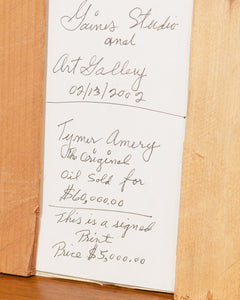 Gaines Studio
and
Art Gallery
02/13/2002
Tymer Amery
The Original
Oil Sold for
$60,000.00
This is a signed
Print
Price $5,000.00